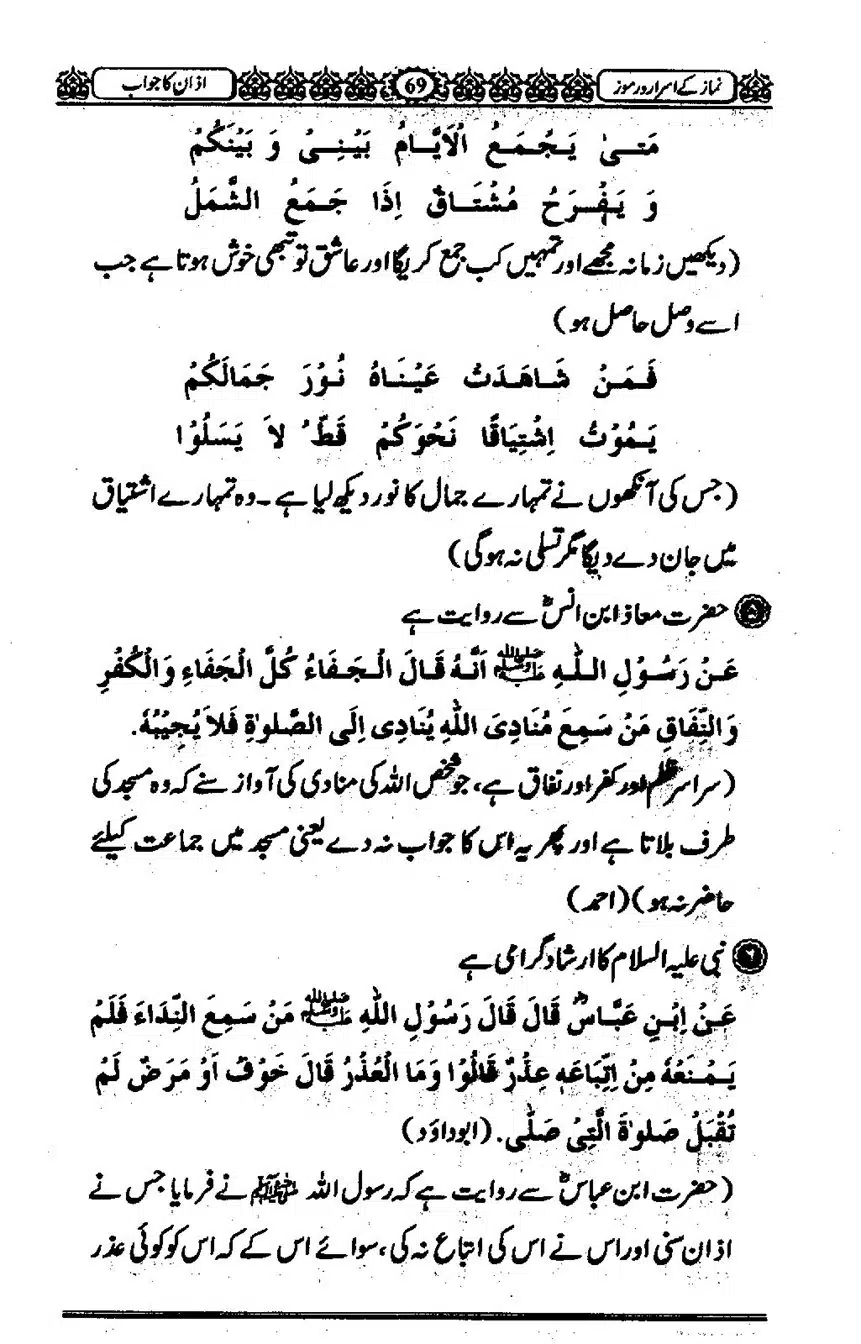 نماز کے اسرار و رموز 69 اذان کا جواب
مَتىٰ يَجْمَعُ الْاَيَّامُ بَيْنِىْ وَ بَيْنَكُمْ
وَ يَفْرَحُ مُشْتَاقٌ اِذَا جَمَعُ الشَّمَلُ
(دیکھیں زمانہ مجھے اور تمہیں کب جمع کریگا اور عاشق تو تبھی خوش ہوتا ہے جب
اسے وصل حاصل ہو)
فَمَنْ شَاهَدَتْ عَيْنَاهُ نُوْرَ جَمَالَكُمْ
يَمُوْتُ اِشْتِيَاقًا نَحْوَكُمْ قَطّ' لاَ يَسَلُوْا
(جس کی آنکھوں نے تمہارے جمال کا نور دیکھ لیا ہے۔ وہ تمہارے اشتیاق
میں جان دے دیگا مگر تسلی نہ ہوگی)
۵ حضرت معاذ ابن انسؓ سے روایت ہے
عَنْ رَسُوْلِ اللّٰهِ ﷺ اَنَّهٗ قَالَ الْجَفَاءُ كُلَّ الْجَفَاءِ وَالْكُفْرِ
وَالنِّفَاقِ مَنْ سَمِعَ مُنَادِىَ اللّٰهِ يُنَادِى اِلَى الصَّلوٰةِ فَلاَ يُجِيْبُهٗ.
(سراسر ظلم اور کفر اور نفاق ہے، جو شخص اللہ کی منادی کی آواز سنے کہ وہ مسجد کی
طرف بلاتا ہے اور پھر یہ اس کا جواب نہ دے یعنی مسجد میں جماعت کیلئے
حاضر نہ ہو) (احمد)
۶ نبی علیہ السلام کا ارشاد گرامی ہے
عَنْ اِبْنِ عَبَّاسٍؓ قَالَ قَالَ رَسُوْلِ اللّٰهِ ﷺ مَنْ سَمِعَ النِّدَاءَ فَلَمْ
يَمْنَعُهٗ مِنْ اِتِّبَاعَهٖ عِذْرٌ قَالُوْا وَمَا الْعُذْرُ قَالَ خَوْفٌ اَوْ مَرَضٌ لَمْ
تُقْبَلُ صَلوٰةَ الَّتِىْ صَلّٰى. (ابوداؤد)
(حضرت ابن عباسؓ سے روایت ہے کہ رسول اللہ ﷺ نے فرمایا جس نے
اذان سنی اور اس نے اس کی اتباع نہ کی، سوائے اس کے کہ اس کو کوئی عذر